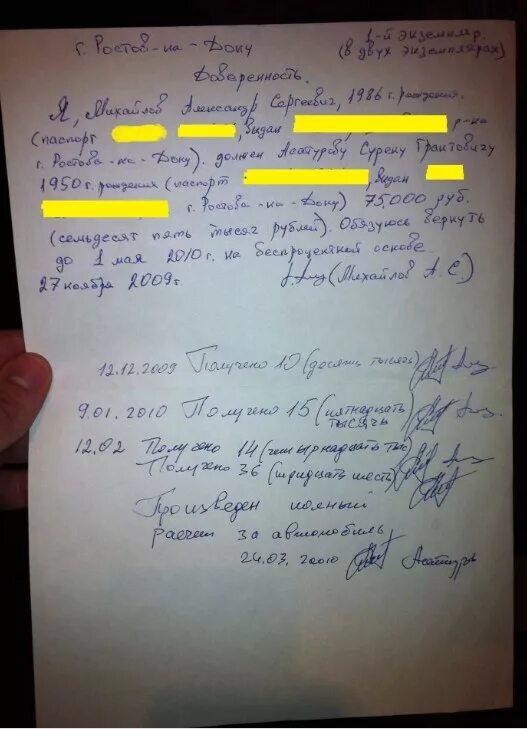 1-й экземпляр.
(в двух экземплярах)
г. Ростов-на-Дону
Доверенность.
Я, Михайлов Александр Сергеевич, 1986 г. рождения.
(паспорт , выдан р-на
г. Ростова-на-Дону). должен Асатурову Сурену Грантовичу
1950 г. рождения (паспорт , выдан
г. Ростова-на-Дону) 75000 руб.
(семьдесят пять тысяч рублей). Обязуюсь вернуть
до 1 мая 2010 г. на беспроцентной основе.
27 ноября 2009 г (Михайлов А. С.)
12.12.2009 Получено 10 (десять тысяч)
9.01.2010 Получено 15 (пятнадцать
тысяч)
12.02 Получено 14 (четырнадцать тыс)
Получено 36 (тридцать шесть)
Произведен полный
расчет за автомобиль
24.03.2010